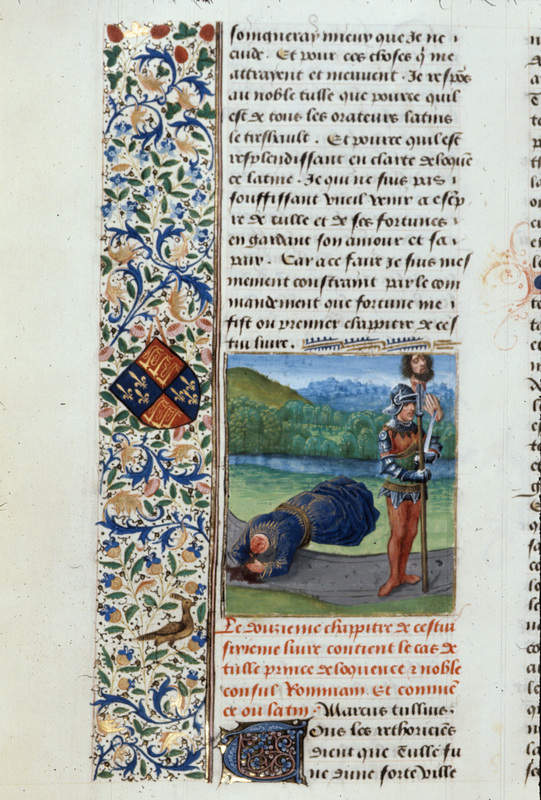 sonqueray mieux que Je ne
cuide. Et pour ces choses q̃ me
attrayent et meuvent. Je respõs
au noble tulle que pource quil
est de tous les orateurs latins
le treshault. Et pource quil est
resplendissant en clarte deloquẽ
ce latine. Je qui ne suis pas
souffissant vueil venir a escp
re de tulle et de ses fortunes
en gardant son amour et sa
paix. Car a ce faire je suis mes
mement constraint par le com
mandement que fortune me
fist ou premier chappitre de ces
tui livre.
Le douzieme chappitre de cestui
sixieme livre contient le cas de
tulle prince deloquence & noble
consul Rommain. Et commẽ
ce ou latin. Marcus tullius.
Tous les rethoriciẽs
dient que Tulle fu
ne dune forte ville